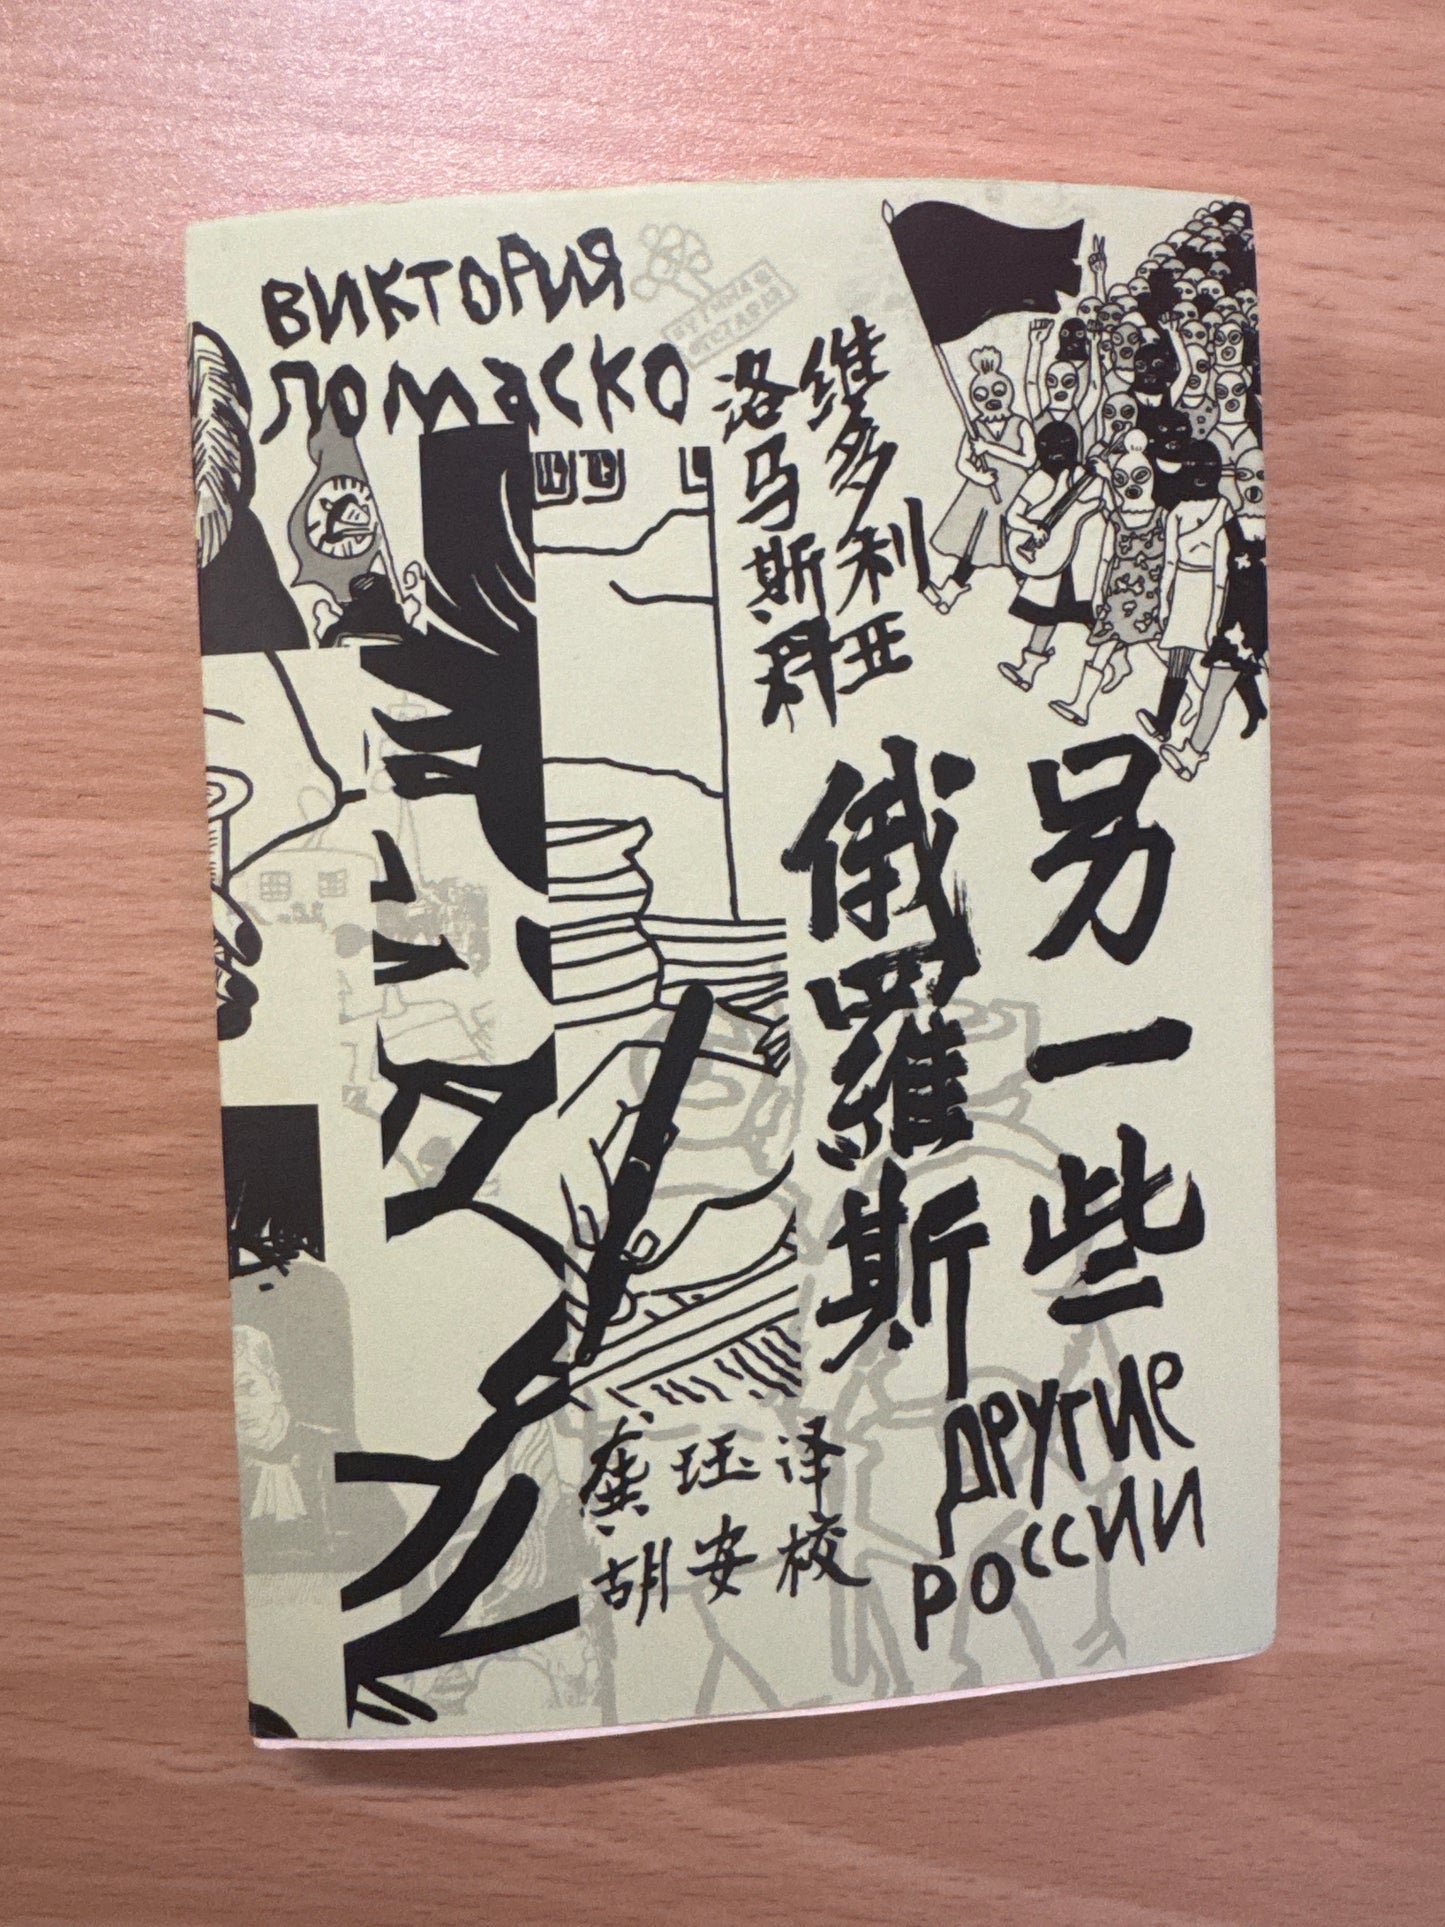 ВИКТОРИЯ
ЛОМАСКО
维多利亚
洛马斯科
另一些
俄羅斯
ДРУГИЕ
РОССИИ
龚珏译
胡安校